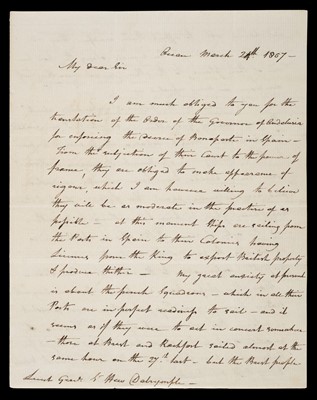 Ocean March 24th 1807 –
My dear Sir
I am much obliged to you for the
translation of the Order of the Governor of Andalusia
for enforcing the decree of Bonaparte in Spain –
From the subjection of their Court to the power of
france, they are obliged to make appearance of
rigour, which I am however willing to believe
they will be as moderate in the practice of as
possible – at this moment Ships are sailing from
the Ports in Spain to their Colonies having
Licences from the King to export British property
& produce thither – My great anxiety at present
is about the french Squadrons – which in all their
Ports are in perfect readiness to sail – and it
seems as if they were to act in concert somewhere
– those at Brest and Rochfort sailed almost at the
same hour on the 27th last – but the Brest people
Lieut Genl Sr Hew Dalrymple –